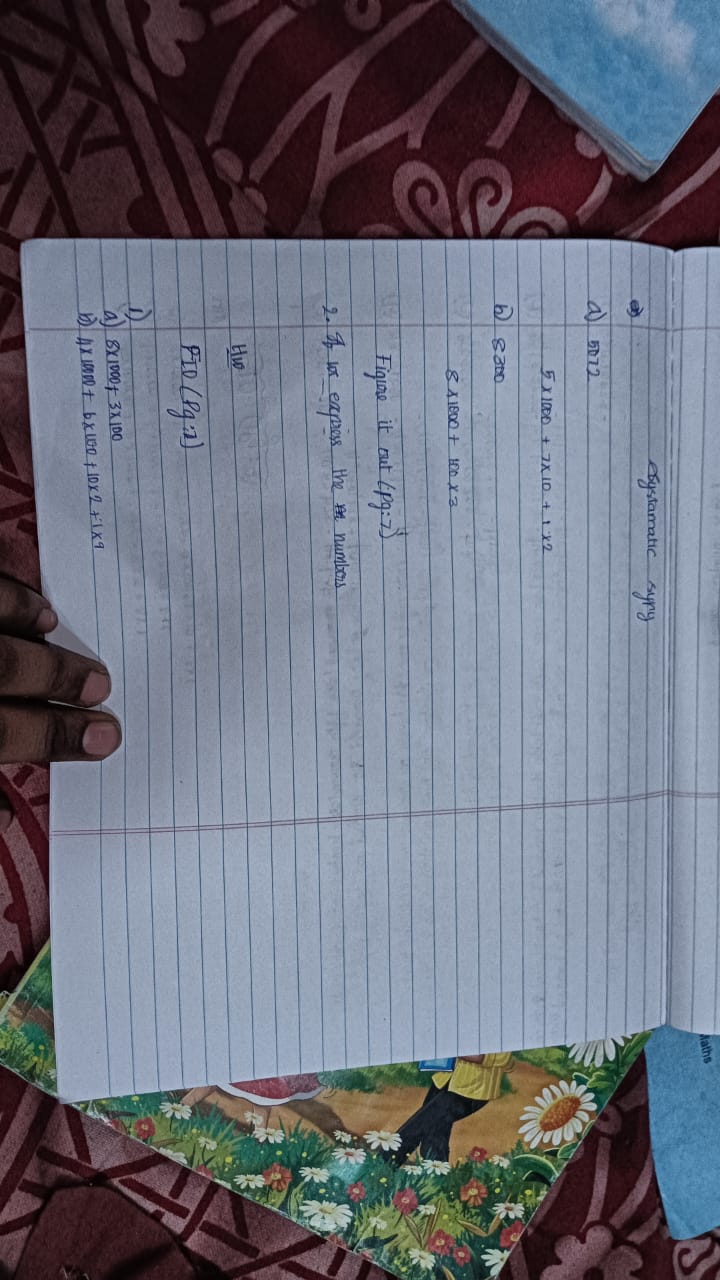 Maths
Systamatic sypy
a) 5072
5 x 1000 + 7x 10 + 1 x2
b) 8300
8 x 1000 + 100 x 3
Figure it out (Pg:7)
2. express the numbers
HW
FIO (Pg:7)
1)
a) 8x1000+ 3x100
b) 4x 10000 + 6x100 +10x2 +1x9